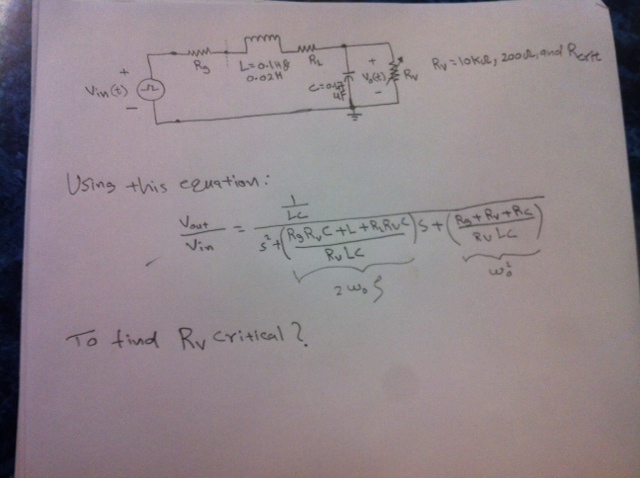 Rg
L=0.1H &
0.02H
RL
+
Vin(t)
-
+
Vo(t)
-
Rv
Rv = 10KΩ, 200Ω, and Rcrit
Using this equation:
Vout/Vin = (1/LC) / (s² + ((RgRvC + L + RLRvC)/(RvLC)) s + ((Rg + Rv + RL)/(RvLC)))
2ω₀ζ
ω₀²
To find Rv critical?